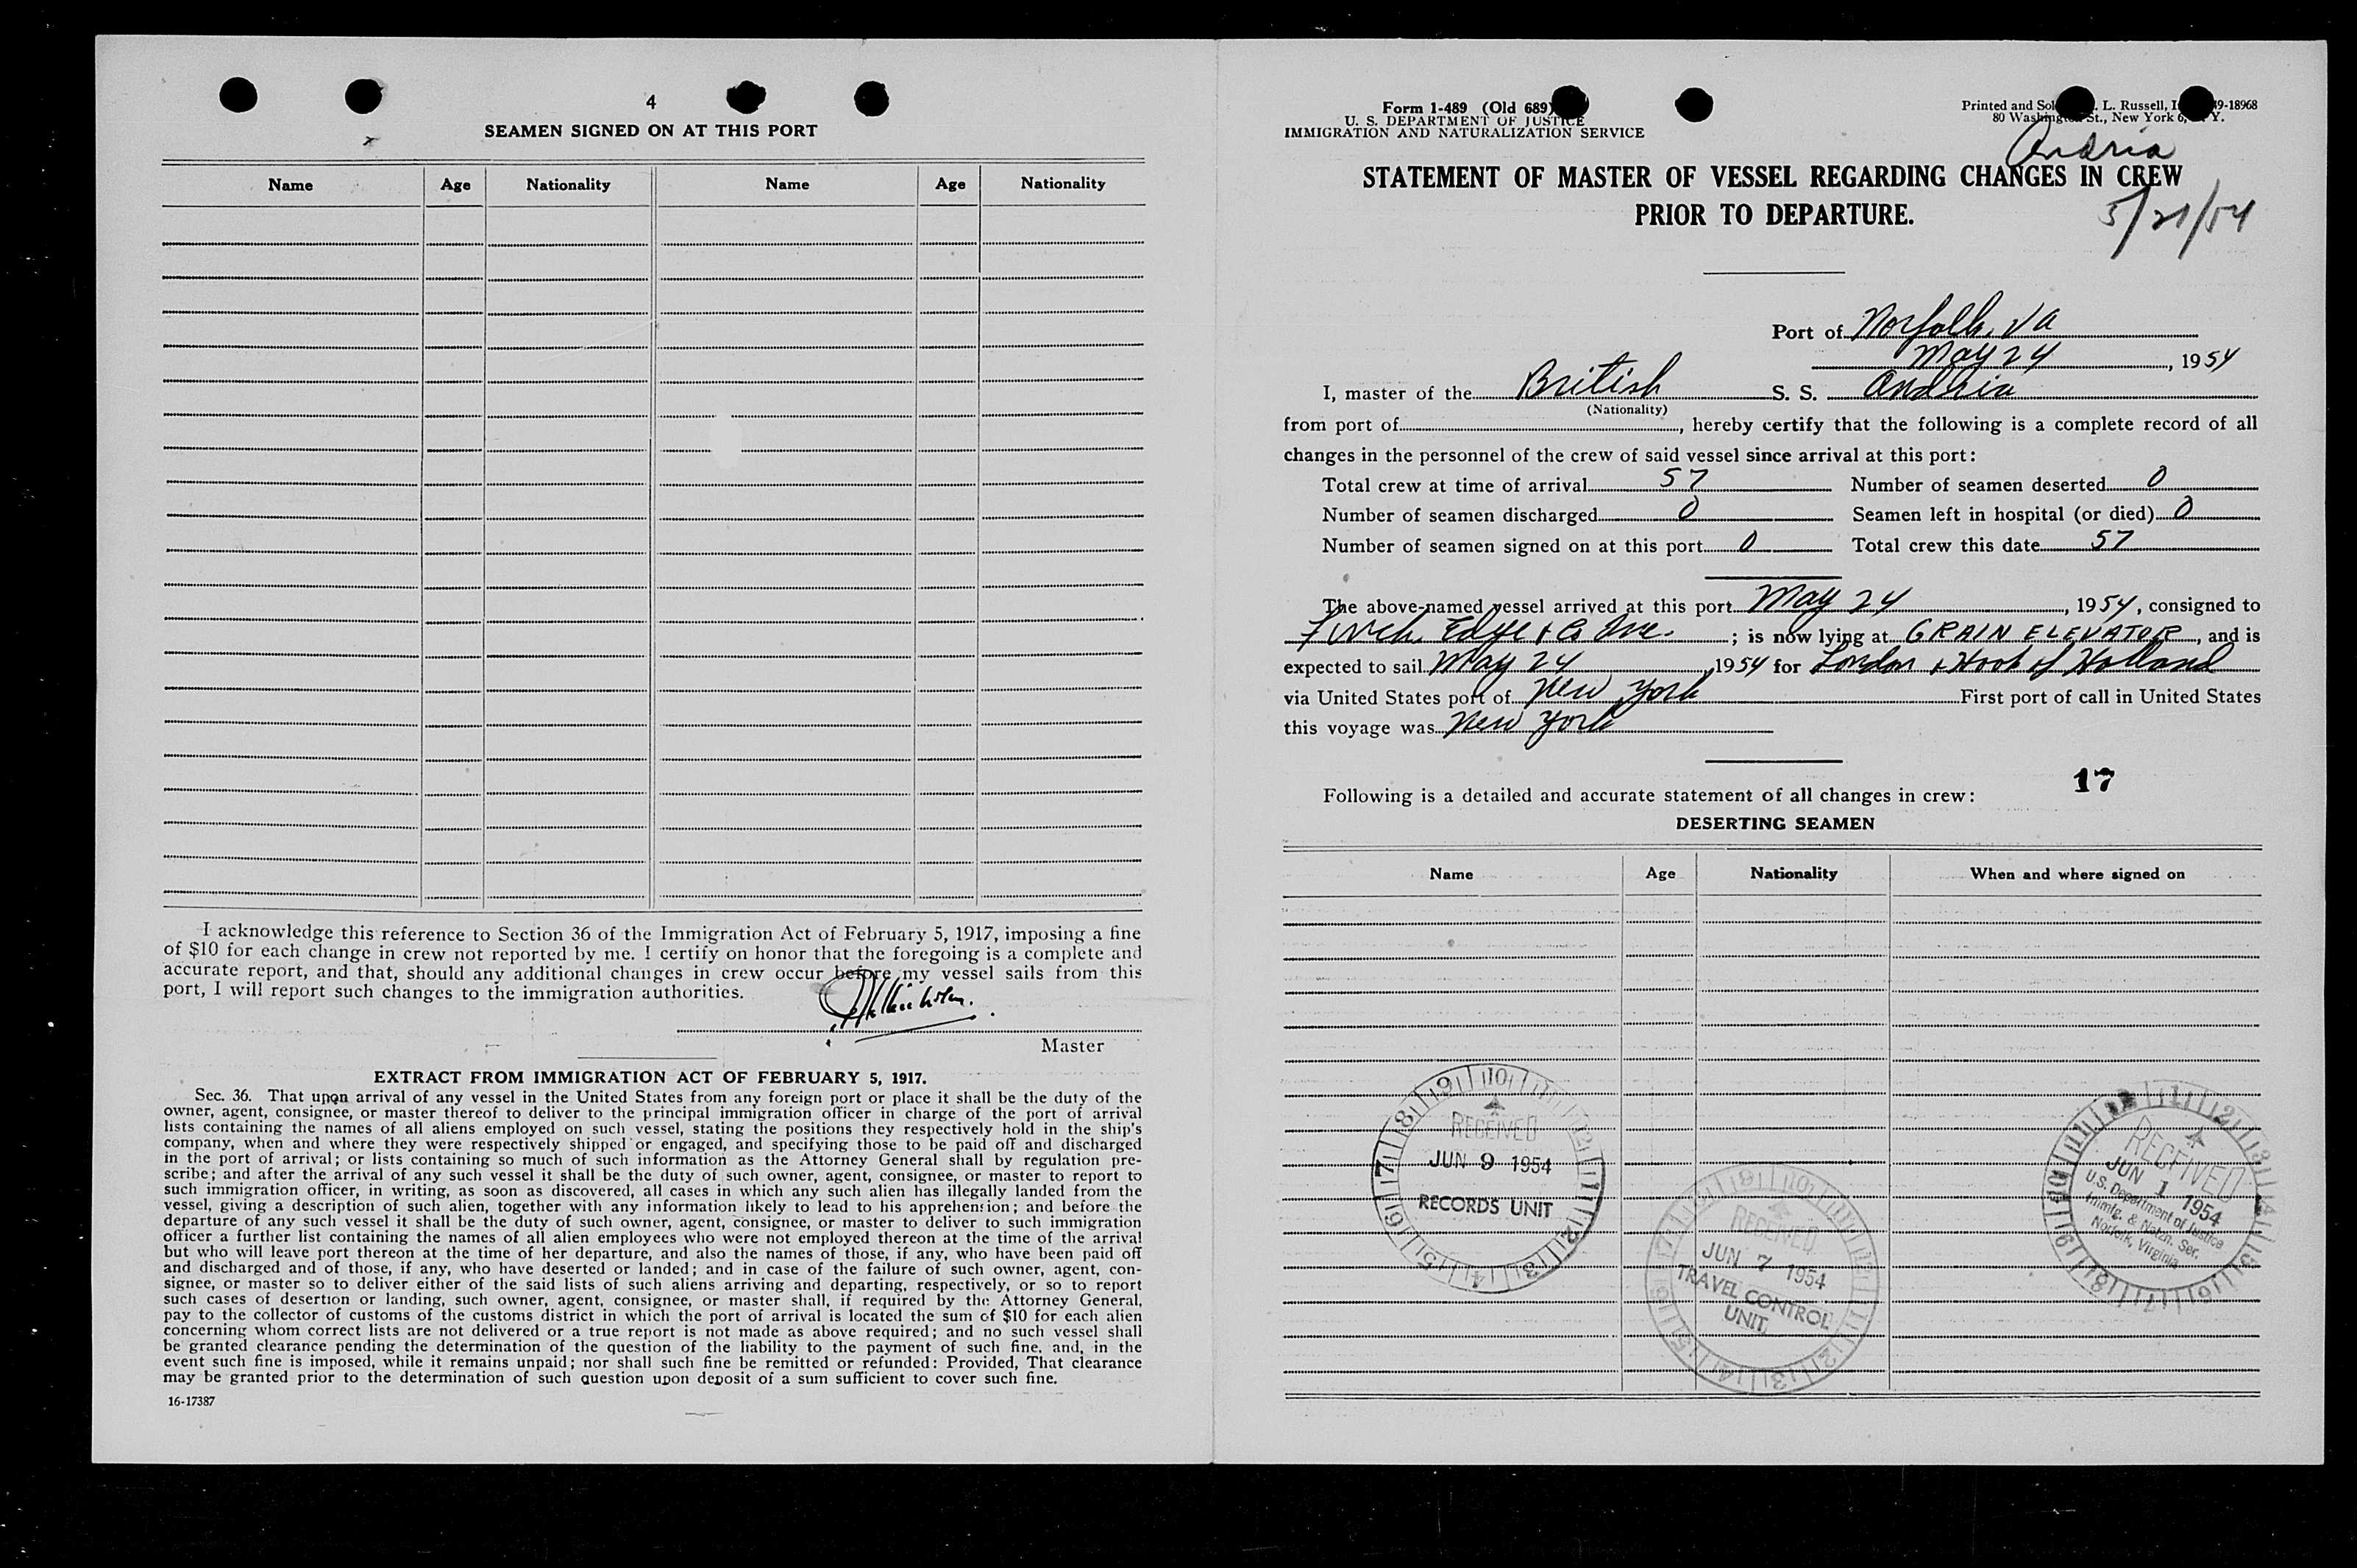 4
SEAMEN SIGNED ON AT THIS PORT
Name Age Nationality Name Age Nationality
I acknowledge this reference to Section 36 of the Immigration Act of February 5, 1917, imposing a fine
of $10 for each change in crew not reported by me. I certify on honor that the foregoing is a complete and
accurate report, and that, should any additional changes in crew occur before my vessel sails from this
port, I will report such changes to the immigration authorities.
Master
EXTRACT FROM IMMIGRATION ACT OF FEBRUARY 5, 1917.
Sec. 36. That upon arrival of any vessel in the United States from any foreign port or place it shall be the duty of the
owner, agent, consignee, or master thereof to deliver to the principal immigration officer in charge of the port of arrival
lists containing the names of all aliens employed on such vessel, stating the positions they respectively hold in the ship's
company, when and where they were respectively shipped or engaged, and specifying those to be paid off and discharged
in the port of arrival; or lists containing so much of such information as the Attorney General shall by regulation pre-
scribe; and after the arrival of any such vessel it shall be the duty of such owner, agent, consignee, or master to report to
such immigration officer, in writing, as soon as discovered, all cases in which any such alien has illegally landed from the
vessel, giving a description of such alien, together with any information likely to lead to his apprehension; and before the
departure of any such vessel it shall be the duty of such owner, agent, consignee, or master to deliver to such immigration
officer a further list containing the names of all alien employees who were not employed thereon at the time of the arrival
but who will leave port thereon at the time of her departure, and also the names of those, if any, who have been paid off
and discharged and of those, if any, who have deserted or landed; and in case of the failure of such owner, agent, con-
signee, or master so to deliver either of the said lists of such aliens arriving and departing, respectively, or so to report
such cases of desertion or landing, such owner, agent, consignee, or master shall, if required by the Attorney General,
pay to the collector of customs of the customs district in which the port of arrival is located the sum of $10 for each alien
concerning whom correct lists are not delivered or a true report is not made as above required; and no such vessel shall
be granted clearance pending the determination of the question of the liability to the payment of such fine, and, in the
event such fine is imposed, while it remains unpaid; nor shall such fine be remitted or refunded: Provided, That clearance
may be granted prior to the determination of such question upon deposit of a sum sufficient to cover such fine.
16-17387
Form I-489 (Old 689)
U. S. DEPARTMENT OF JUSTICE
IMMIGRATION AND NATURALIZATION SERVICE
Printed and Sol L. Russell, 49-18968
80 Washington St., New York 6, Y.
Andria
STATEMENT OF MASTER OF VESSEL REGARDING CHANGES IN CREW
PRIOR TO DEPARTURE.
5/21/54
Port of Norfolk, Va
May 24, 1954
I, master of the British S. S. Andria
(Nationality)
from port of, hereby certify that the following is a complete record of all
changes in the personnel of the crew of said vessel since arrival at this port:
Total crew at time of arrival 57 Number of seamen deserted 0
Number of seamen discharged 0 Seamen left in hospital (or died) 0
Number of seamen signed on at this port 0 Total crew this date 57
The above-named vessel arrived at this port May 24, 1954, consigned to
Edye & Co Inc.; is now lying at GRAIN ELEVATOR, and is
expected to sail May 24, 1954 for London & Hook of Holland
via United States port of New York First port of call in United States
this voyage was New York
17
Following is a detailed and accurate statement of all changes in crew:
DESERTING SEAMEN
Name Age Nationality When and where signed on
RECEIVED
JUN 9 1954
RECORDS UNIT
RECEIVED
JUN 7 1954
TRAVEL CONTROL
UNIT
RECEIVED
JUN 1 1954
U.S. Department of Justice
Immig. & Natzn. Ser.
Norfolk, Virginia